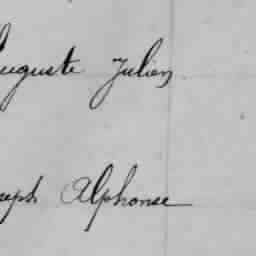 Auguste Julien
Joseph Alphonse